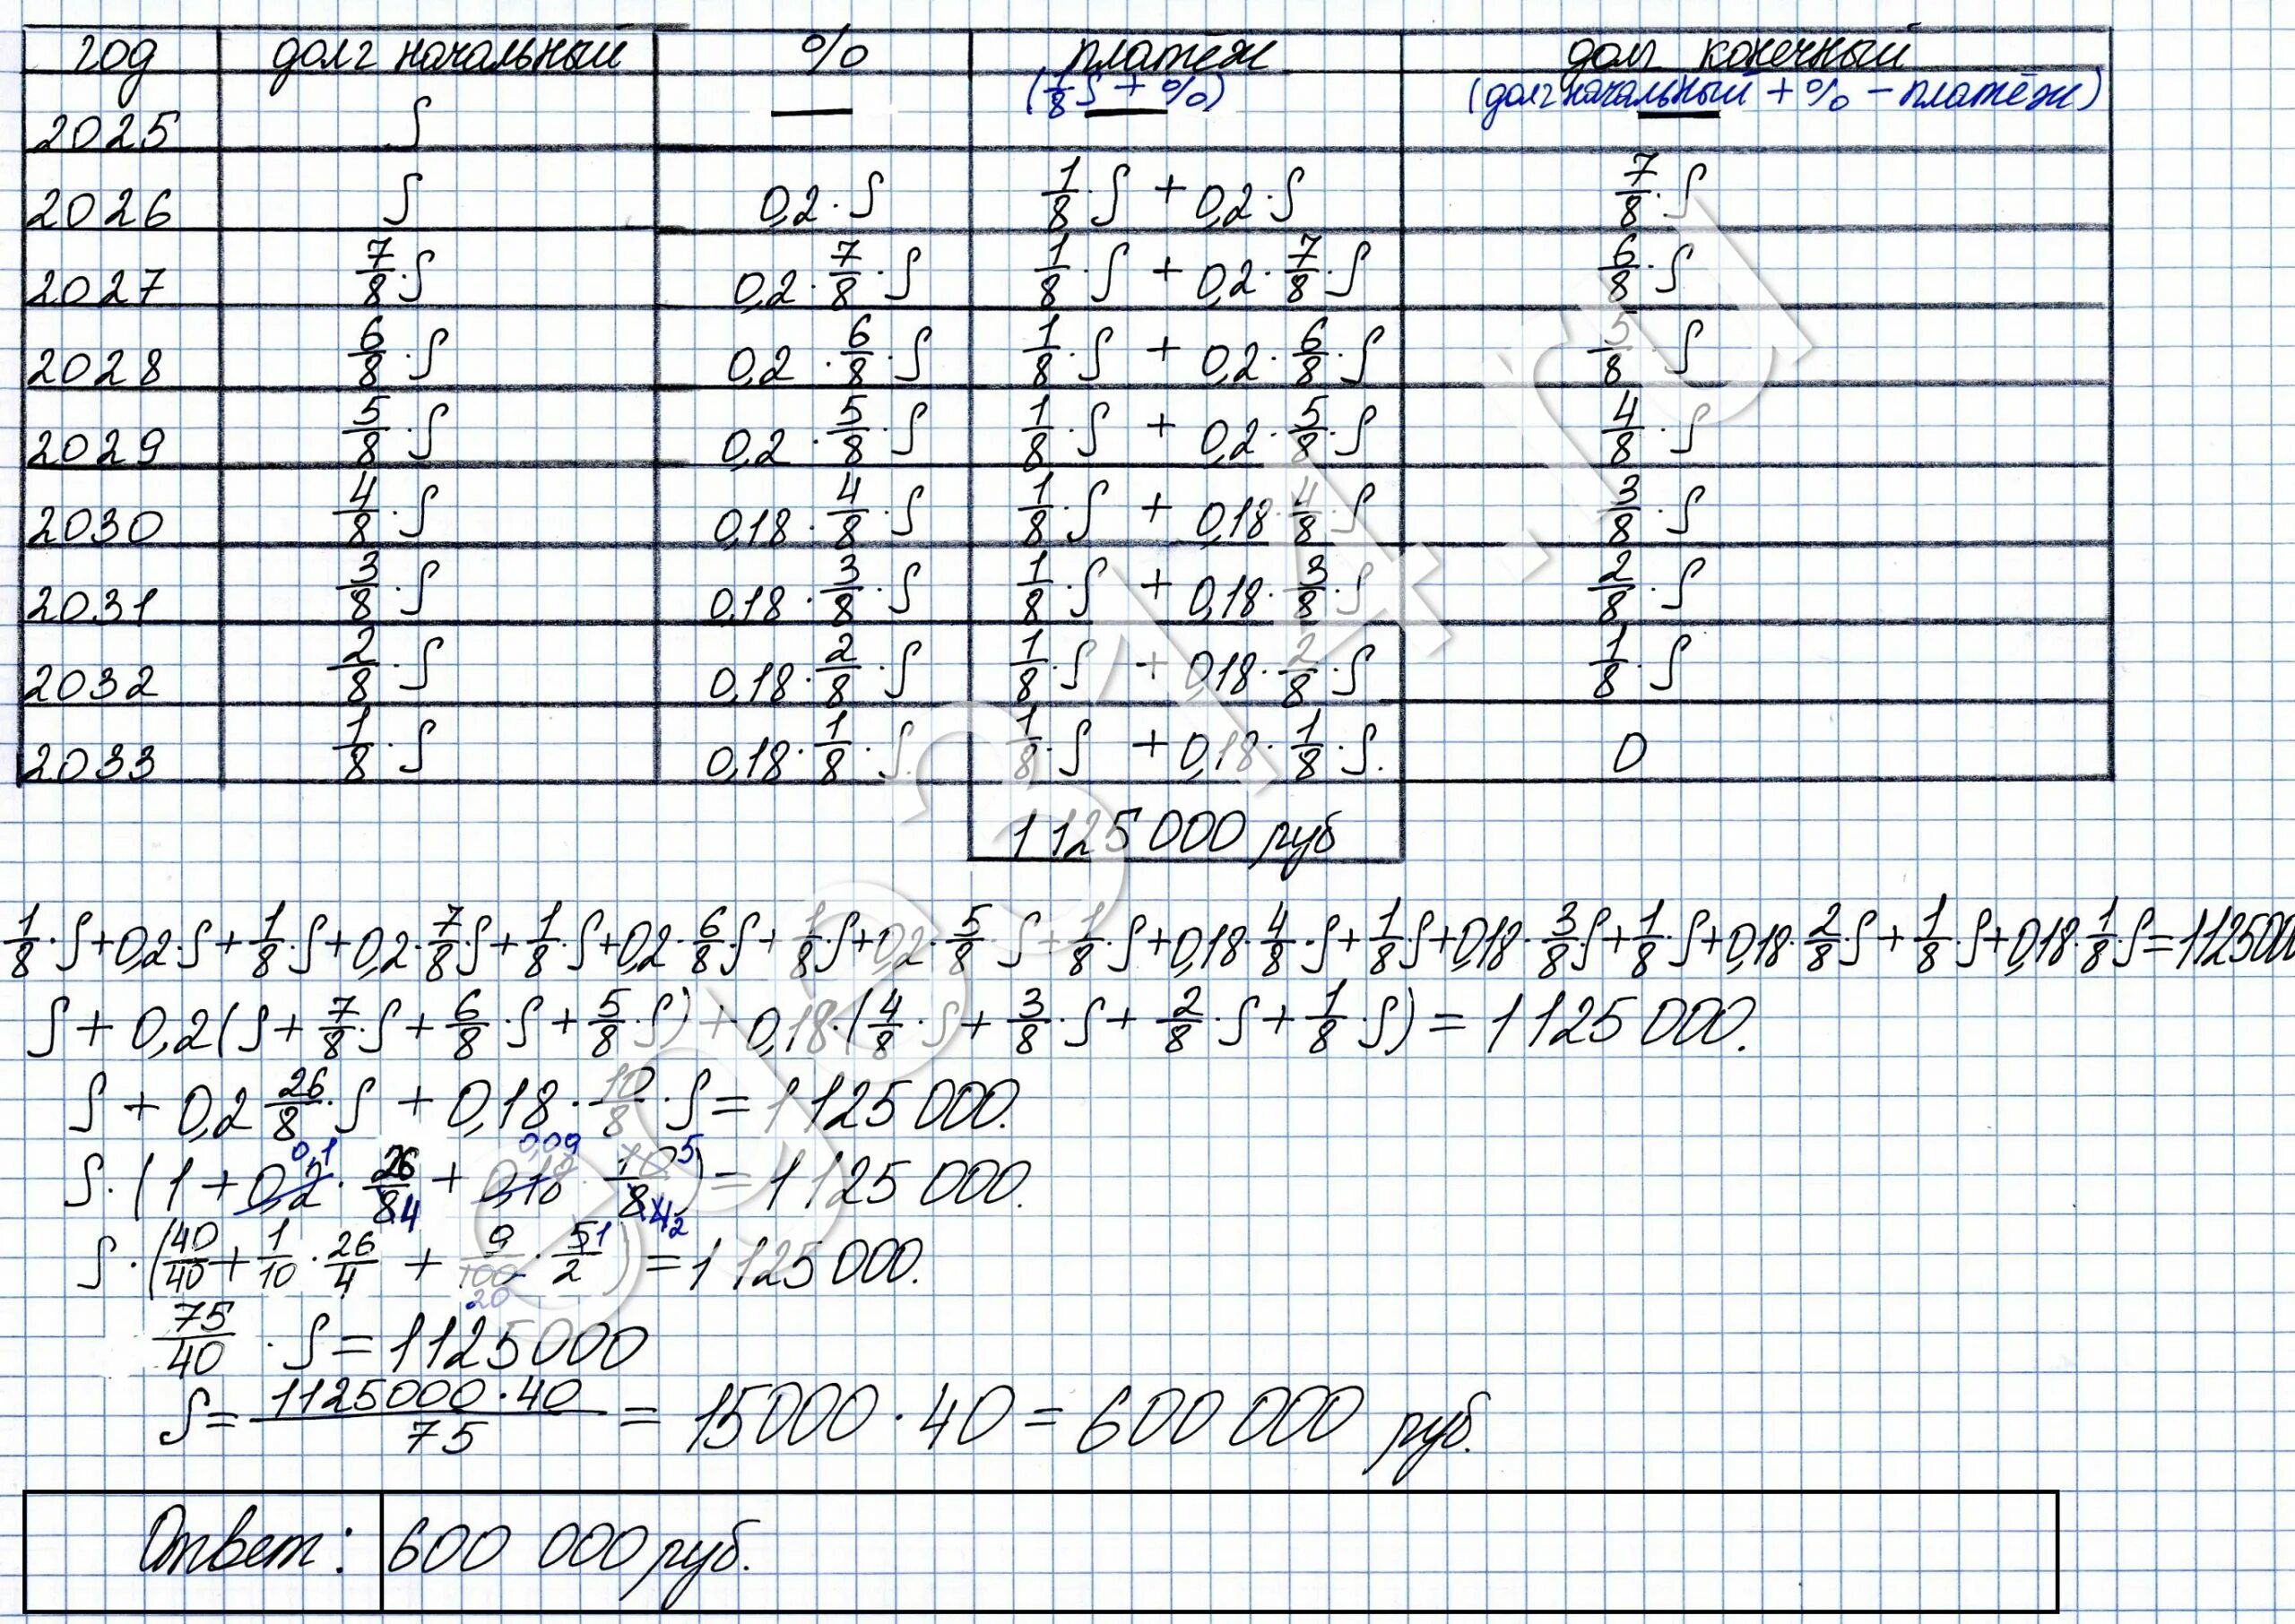 год долг начальный % платёж долг конечный
(1/8 S + %) (долг начальный + % − платёж)
2025 S — — —
2026 S 0,2·S 1/8·S + 0,2·S 7/8·S
2027 7/8·S 0,2·7/8·S 1/8·S + 0,2·7/8·S 6/8·S
2028 6/8·S 0,2·6/8·S 1/8·S + 0,2·6/8·S 5/8·S
2029 5/8·S 0,2·5/8·S 1/8·S + 0,2·5/8·S 4/8·S
2030 4/8·S 0,18·4/8·S 1/8·S + 0,18·4/8·S 3/8·S
2031 3/8·S 0,18·3/8·S 1/8·S + 0,18·3/8·S 2/8·S
2032 2/8·S 0,18·2/8·S 1/8·S + 0,18·2/8·S 1/8·S
2033 1/8·S 0,18·1/8·S. 1/8·S + 0,18·1/8·S. 0
1125000 руб
1/8·S+0,2·S+1/8·S+0,2·7/8·S+1/8·S+0,2·6/8·S+1/8·S+0,2·5/8·S+1/8·S+0,18·4/8·S+1/8·S+0,18·3/8·S+1/8·S+0,18·2/8·S+1/8·S+0,18·1/8·S=1125000
S + 0,2(S + 7/8·S + 6/8·S + 5/8·S) + 0,18·(4/8·S + 3/8·S + 2/8·S + 1/8·S) = 1125000.
S + 0,2 26/8·S + 0,18·10/8·S = 1125000.
0,1 0,09 5
S·(1 + 0,2·26/8 + 0,18·10/8) = 1125000.
4 4 2
S·(40/40 + 1/10·26/4 + 9/100·5/2) = 1125000.
20 1
75/40·S = 1125000
S = 1125000·40/75 = 15000·40 = 600 000 руб.
Ответ: 600 000 руб.